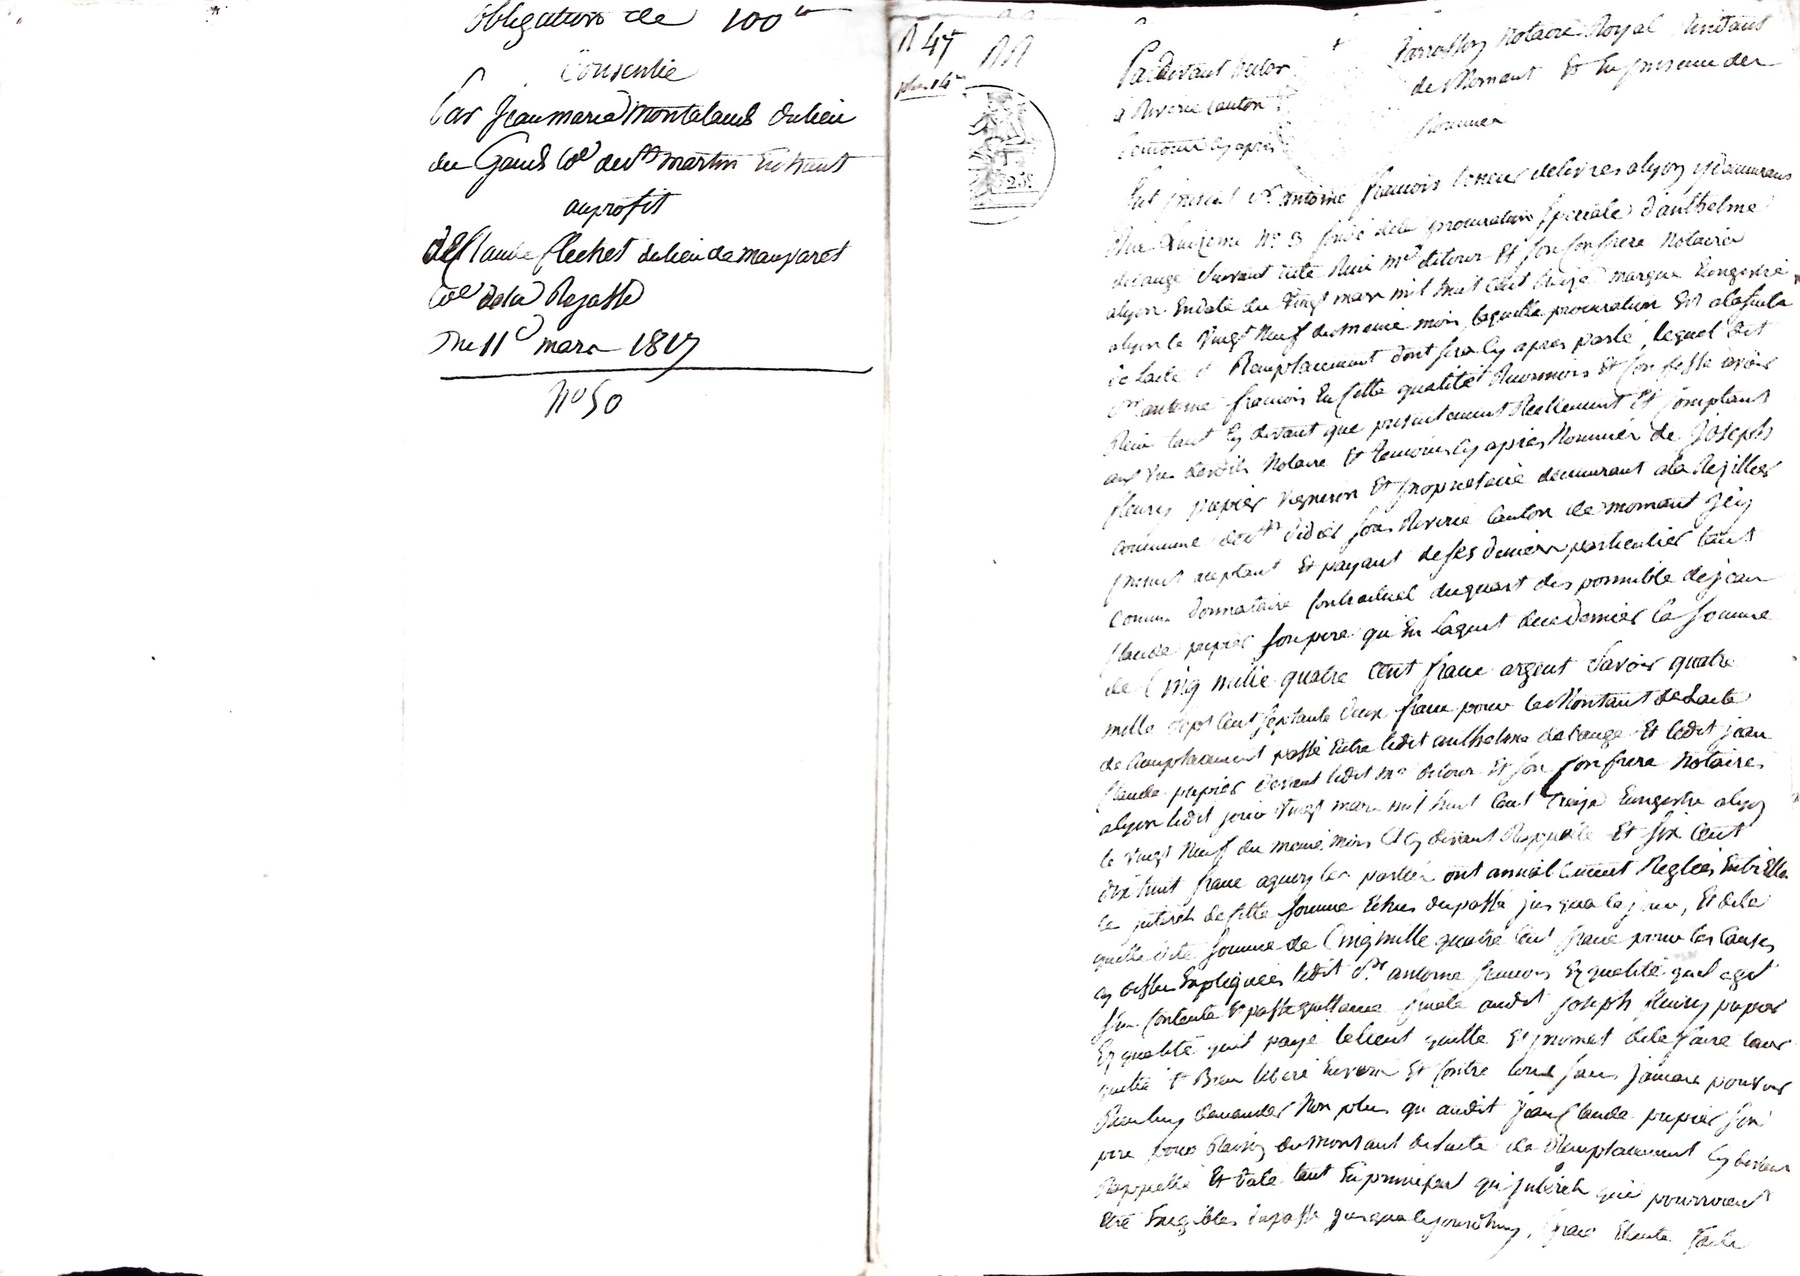 obligation de 100 tt
Consentie
Par Jean marie Montaland du lieu
du Gaud Coe de St martin En haut
au profit
de Claude flechet du lieu de mauvaret
Coe de la Rajasse
Du 11e mars 1817
No 50
N 47
Pardevant Victor notaire Royal Residant
a Riverie Canton de Mornant Et En presence des
temoins Cy après Nommés
fut present Sr antoine francois teneur de livres a lyon y demeurant
Rue No 3 fondé de la procuration speciale d'anthelme
delauge Suivant acte Reçu Me detour Et son Confrere Notaires
a lyon En date du Vingt mars mil huit Cent treize Enregistré
a lyon le Vingt Neuf du meme mois, laquelle procuration Est a la suite
de lacte de Remplacement dont sera Cy après parlé, lequel dit
Sr antoine francois En Cette qualité Reconnois Et Confesse avoir
Recu tant Cy devant que presentement Reellement Et Comptant
aux vu desdits Notaire Et temoins Cy après Nommés de Joseph
fleury papier vigneron Et proprietaire demeurant a la Rejillier
commune de St Didier sous Riverie Canton de mornant Icy
present acceptant Et payant de ses deniers particulier tant
Comme donnataire Contractuel du quart disponnible de jean
Claude papier son pere qu'En laquit de ce dernier la somme
de Cinq mille quatre Cent franc argent Savoir quatre
mille sept Cent septante deux franc pour le Montant de lacte
de Remplacement passé Entre ledit anthelme delauge Et ledit jean
Claude papier devant ledit Me detour Et son Confrere Notaires
a lyon ledit jour Vingt mars mil huit Cent treize Enregistré a lyon
le vingt Neuf du meme mois Cy devant Rappellé Et six Cent
dix huit franc a quoy les parties ont annuellement Reglées Entre Elles
les interets de Cette somme Echus du passé jusqua Ce jour, Et de la
quelle dite somme de Cinq mille quatre Cent franc pour les Causes
Cy dessus Expliquées ledit Sr antoine francois En qualité quil agit
s'En Contente Et passe quittance finale audit Joseph fleury papier
En qualité quil paye le tient quitte Et promet de le faire tenir
quitte Et Bien liberé Envers Et Contre tous sans jamais pouvoir
Rien luy demander Non plus qu'audit jean Claude papier son
pere pour Raison du montant de lacte de Remplacement Cy devant
Rappellé Et daté tant En principal qu'interets qui pourroient
Etre Exigibles du passé jusqua Ce jourdhuy,